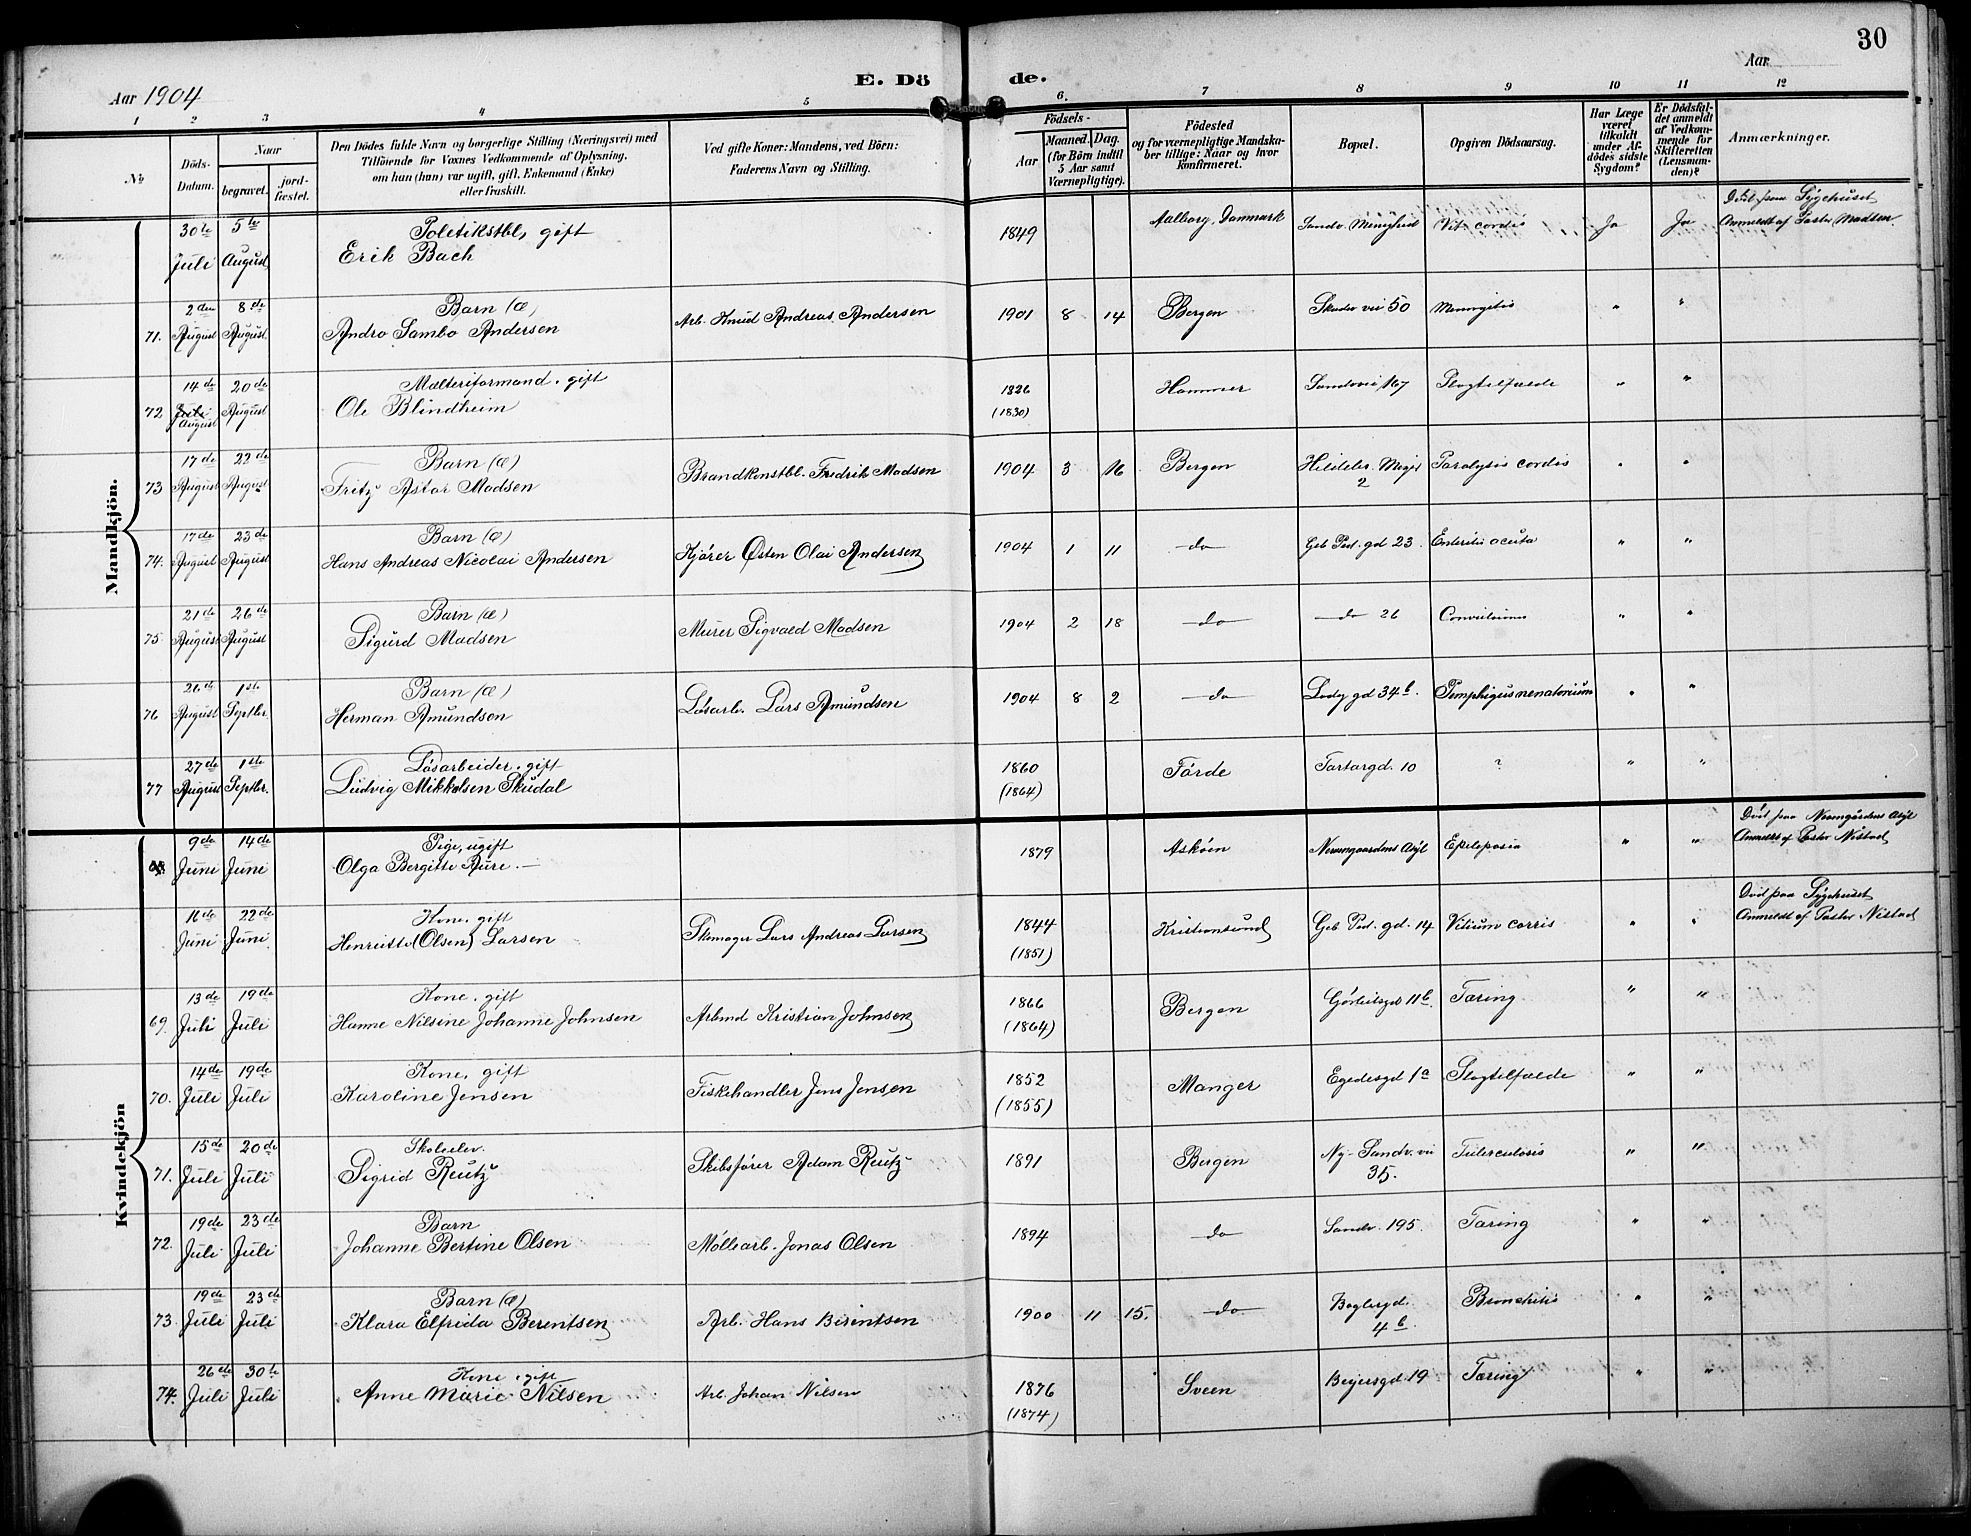 30
Aar 1904
E. Dö
de.
Aar
1 2 3 4 5 6. 7 8 9 10 11 12
No
Döds-Datum.
Naar
begravet.
jord-fæstet.
Den Dödes fulde Navn og borgerlige Stilling (Næringsvei) med
Tilföiende for Voxnes Vedkommende af Oplysning,
om han (hun) var ugift, gift, Enkemand (Enke)
eller fraskilt.
Ved gifte Koner: Mandens, ved Börn:
Faderens Navn og Stilling.
Födsels-
Aar
Maaned. Dag.
(for Börn indtil
5 Aar samt
Værnepligtige).
Födested
og for værnepligtige Mandska-
ber tillige: Naar og hvor
konfirmeret.
Bopæl.
Opgiven Dödsaarsag.
Har Læge
været
tilkaldt
under Af-
dödes sidste
Sygdom?
Er Dödsfal-
det anmeldt
af Vedkom-
mende for
Skifteretten
(Lensman-
den)?
Anmærkninger.
Mandkjön.
30te Juli 5te August Politikstbl, gift Erik Bach 1849 Aalborg, Danmark Sandv. Menighed Vit. cordis Ja Ja Död paa Sygehuset Anmeldt af Pastor Madsen
71. 2den August 8de August Barn (æ) Andro Sambo Andersen Arb. Knud Andreas Andersen 1901 8 14 Bergen Skudev vei 50 Meningitis " "
72 14de Juli August 20de August Mælteriformand, gift Ole Blindheim 1826 (1830) Hammer Sandvei 167 Slagtilfælde " "
73 17de August 22de August Barn (æ) Fritz Astor Madsen Brandkonstbl. Fredrik Madsen 1904 3 16 Bergen 2 Paralysis cordis " "
74. 17de August 23de August Barn (æ) Hans Andreas Nicolai Andersen Kjører Østen Olai Andersen 1904 1 11 do Geb Ped. gd 23. Enteritis acuta " "
75 21de August 26de August Barn (æ) Sigurd Madsen Murer Sigvald Madsen 1904 2 18 do do 26 " "
76 26de August 1ste Septbr. Barn (æ) Herman Amundsen Løsarb. Lars Amundsen 1904 8 2 do Lodg gd 34b. Pemphigus nenatorium " "
77 27de August 1ste Septbr. Løsarbeider, gift Ludvig Mikkelsen Skudal 1860 (1864) Förde Tartargd. 10 ? " "
Kvindekjön
9de Juni 14de Juni Pige, ugift Olga Bergitte Aure 1879 Askøen Nevengaardens Asyl Epilepsia " " Död paa Nevengårdens Asyl Anmeldt af Pastor Nistad
16de Juni 22de Juni Kone, gift Henriette (Olsen) Larsen Skomager Lars Andreas Larsen 1844 (1851) Kristiansund Geb Ped. gd. 14 Vitium corris " " Död paa Sygehuset Anmeldt af Pastor Nistad
69. 13de Juli 19de Juli Kone, gift Hanne Nilsine Johanne Johnsen Arbmd Kristian Johnsen 1866 (1864) Bergen 11b. Tæring " "
70. 14de Juli 19de Juli Kone, gift Karoline Jensen Fiskehandler Jens Jensen 1852 (1855) Manger Egedesgd 1a Slagtilfælde " "
71. 15de Juli 20de Juli Skoleelev. Sigrid Reutz Skibsfører Adam Reutz 1891 Bergen Ny-Sandv. vei 35. Tuberculosis " "
72. 19de Juli 23de Juli Barn Johanne Bertine Olsen Møllearb. Jonas Olsen 1894 do Sandv. 195. Tæring " "
73 19de Juli 23de Juli Barn (æ) Klara Elfrida Berentsen Arb. Hans Berentsen 1900 11 15. do Boglergd. 4b. Bronchitis " "
74. 26de Juli 30te Juli Kone, gift Anne Marie Nilsen Arb. Johan Nilsen 1876 (1874) Sveen Beijersgd 19 Tæring " "